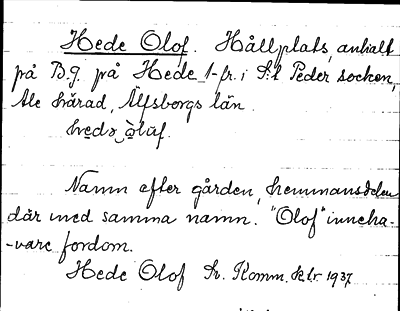 Hede Olof. Hållplats, anhalt
på B.g. på Hede 1-fr. i S:t Peder socken,
Ale härad, Älfsborgs län.
Namn efter gården, hemmansdelen
där med samma namn. "Olof" inneha-
-vare fordom.
Hede Olof Sv. Komm. klr 1937